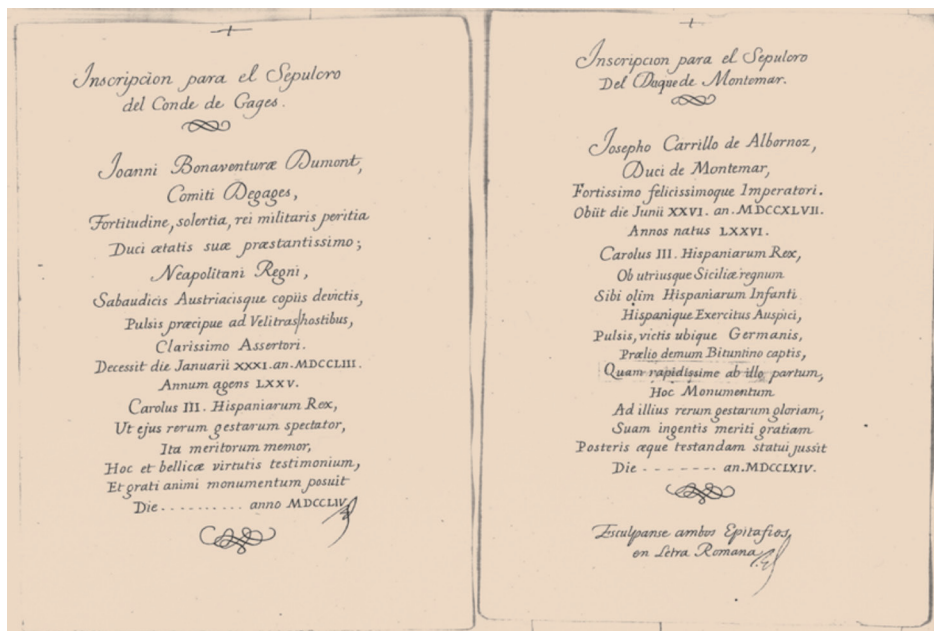 Inscripcion para el Sepulcro
del Conde de Gages.
Joanni Bonaventuræ Dumont,
Comiti Degages,
Fortitudine, solertia, rei militaris peritia
Duci ætatis suæ præstantissimo;
Neapolitani Regni,
Sabaudicis Austriacisque copiis devictis,
Pulsis præcipue ad Velitras hostibus,
Clarissimo Assertori.
Decessit die Januarii XXXI. an. MDCCLIII.
Annum agens LXXV.
Carolus III. Hispaniarum Rex,
Ut ejus rerum gestarum spectator,
Ita meritorum memor,
Hoc et bellicæ virtutis testimonium,
Et grati animi monumentum posuit
Die .......... anno MDCCLIV
Inscripcion para el Sepulcro
Del Duque de Montemar.
Josepho Carrillo de Albornoz,
Duci de Montemar,
Fortissimo felicissimoque Imperatori.
Obiit die Junii XXVI. an. MDCCXLVII.
Annos natus LXXVI.
Carolus III. Hispaniarum Rex,
Ob utriusque Siciliæ regnum
Sibi olim Hispaniarum Infanti
Hispanique Exercitus Auspici,
Pulsis, victis ubique Germanis,
Prælio demum Bituntino captis,
Quam rapidissime ab illo partum,
Hoc Monumentum
Ad illius rerum gestarum gloriam,
Suam ingentis meriti gratiam
Posteris æque testandam statui jussit
Die - - - - - - - an. MDCCLXIV.
Esculpanse ambos Epitafios,
en Letra Romana